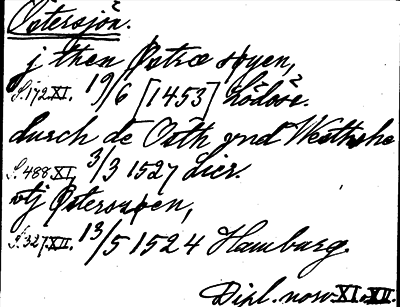 Östersjön.
j then Østræ søyen,
S. 172 XI. 19/6 [1453] Lödöse.
durch de Osth ynd Westhshe
S. 488 XI, 3/3 1527 Lier.
vtj Østersøen,
S. 327 XII. 13/5 1524 Hamburg.
Dipl. norv. XI. XII.